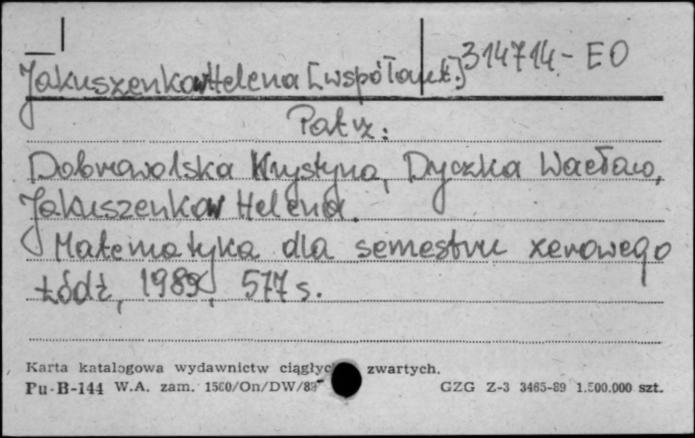 Jakuszenkow Helena [współaut.] 314714-EO
Patrz:
Dobrowolska Krystyna, Dyczka Wacław,
Jakuszenkow Helena.
Matematyka dla semestru zerowego
Łódź, 1989, 577 s.
Karta katalogowa wydawnictw zwartych.
Pu-B-144 W.A. zam. GZG Z-3 3465-89 1.500.000 szt.